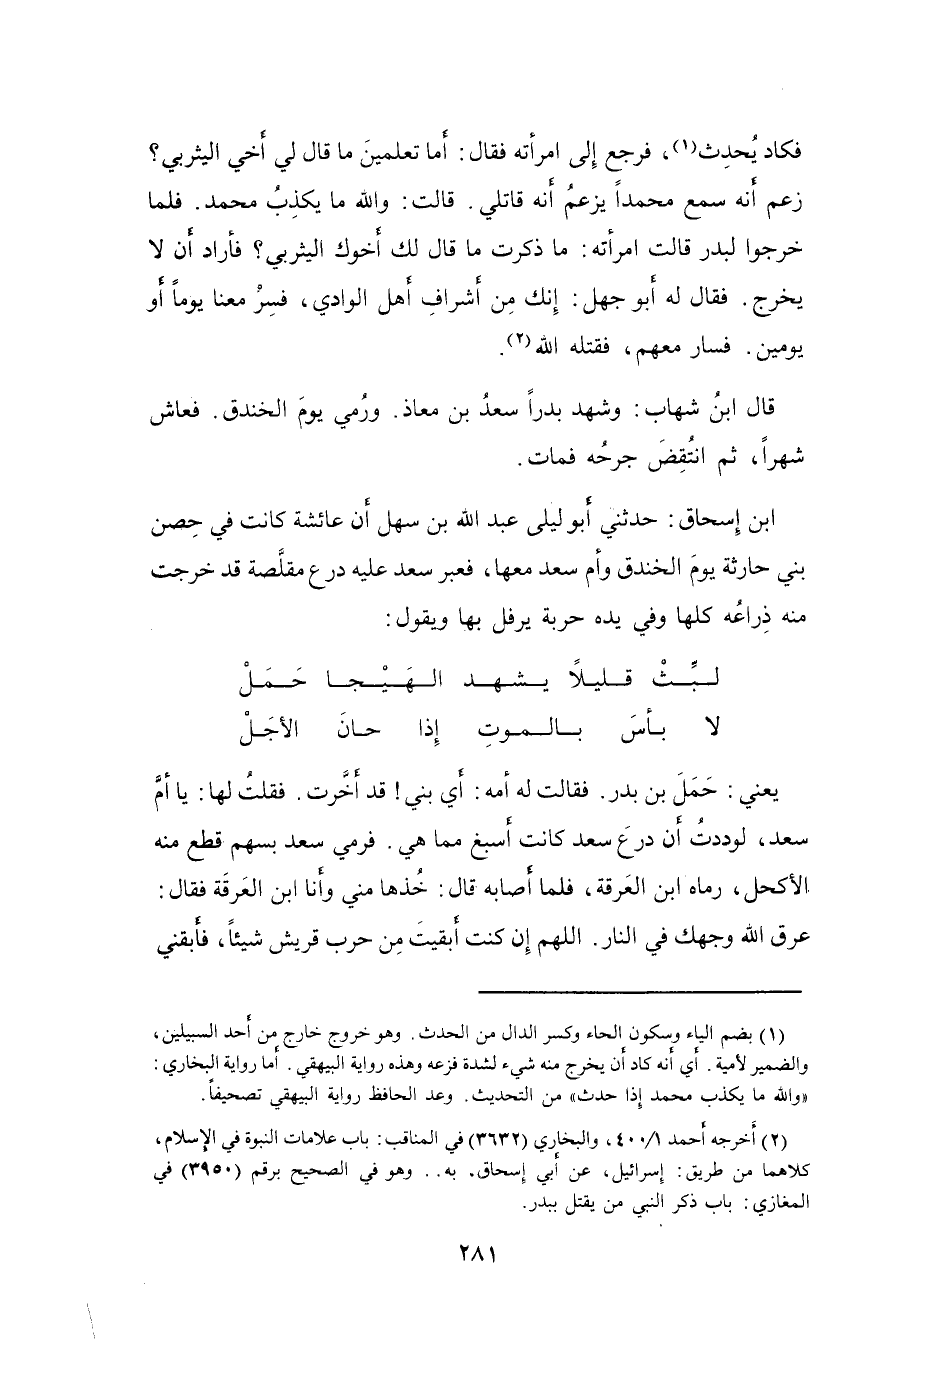 فكاد يُحدِث(١)، فرجع إلى امرأته فقال: أما تعلمينَ ما قال لي أخي اليثربي؟
زعم أنه سمع محمداً يزعمُ أنه قاتلي. قالت: والله ما يكذِبُ محمد. فلما
خرجوا لبدر قالت امرأته: ما ذكرت ما قال لك أخوك اليثربي؟ فأراد أن لا
يخرج. فقال له أبو جهل: إنك مِن أشرافِ أهل الوادي، فسِرْ معنا يوماً أو
يومين. فسار معهم، فقتله الله(٢).
قال ابنُ شهاب: وشهد بدراً سعدُ بن معاذ. ورُمي يومَ الخندق. فعاش
شهراً، ثم انتُقِضَ جرحُه فمات.
ابن إسحاق: حدثني أبو ليلى عبد الله بن سهل أن عائشة كانت في حِصن
بني حارثة يومَ الخندق وأم سعد معها، فعبر سعد عليه درع مقلَّصة قد خرجت
منه ذِراعُه كلها وفي يده حربة يرفل بها ويقول:
لبِّثْ قليلاً يشهد الهَيْجا حَمَلْ
لا بأسَ بالموتِ إذا حانَ الأجَلْ
يعني: حَمَلَ بن بدر. فقالت له أمه: أي بني! قد أخَّرت. فقلتُ لها: يا أمَّ
سعد، لوددتُ أن درعَ سعد كانت أسبغ مما هي. فرمي سعد بسهم قطع منه
الأكحل، رماه ابن العَرقة، فلما أصابه قال: خُذها مني وأنا ابن العَرقَة فقال:
عرق الله وجهك في النار. اللهم إن كنت أبقيتَ مِن حرب قريش شيئاً، فأبقني
(١) بضم الياء وسكون الحاء وكسر الدال من الحدث. وهو خروج خارج من أحد السبيلين،
والضمير لأمية. أي أنه كاد أن يخرج منه شيء لشدة فزعه وهذه رواية البيهقي. أما رواية البخاري:
«والله ما يكذب محمد إذا حدث» من التحديث. وعد الحافظ رواية البيهقي تصحيفاً.
(٢) أخرجه أحمد ٤٠٠/١، والبخاري (٣٦٣٢) في المناقب: باب علامات النبوة في الإسلام،
كلاهما من طريق: إسرائيل، عن أبي إسحاق، به.. وهو في الصحيح برقم (٣٩٥٠) في
المغازي: باب ذكر النبي من يقتل ببدر.
٢٨١